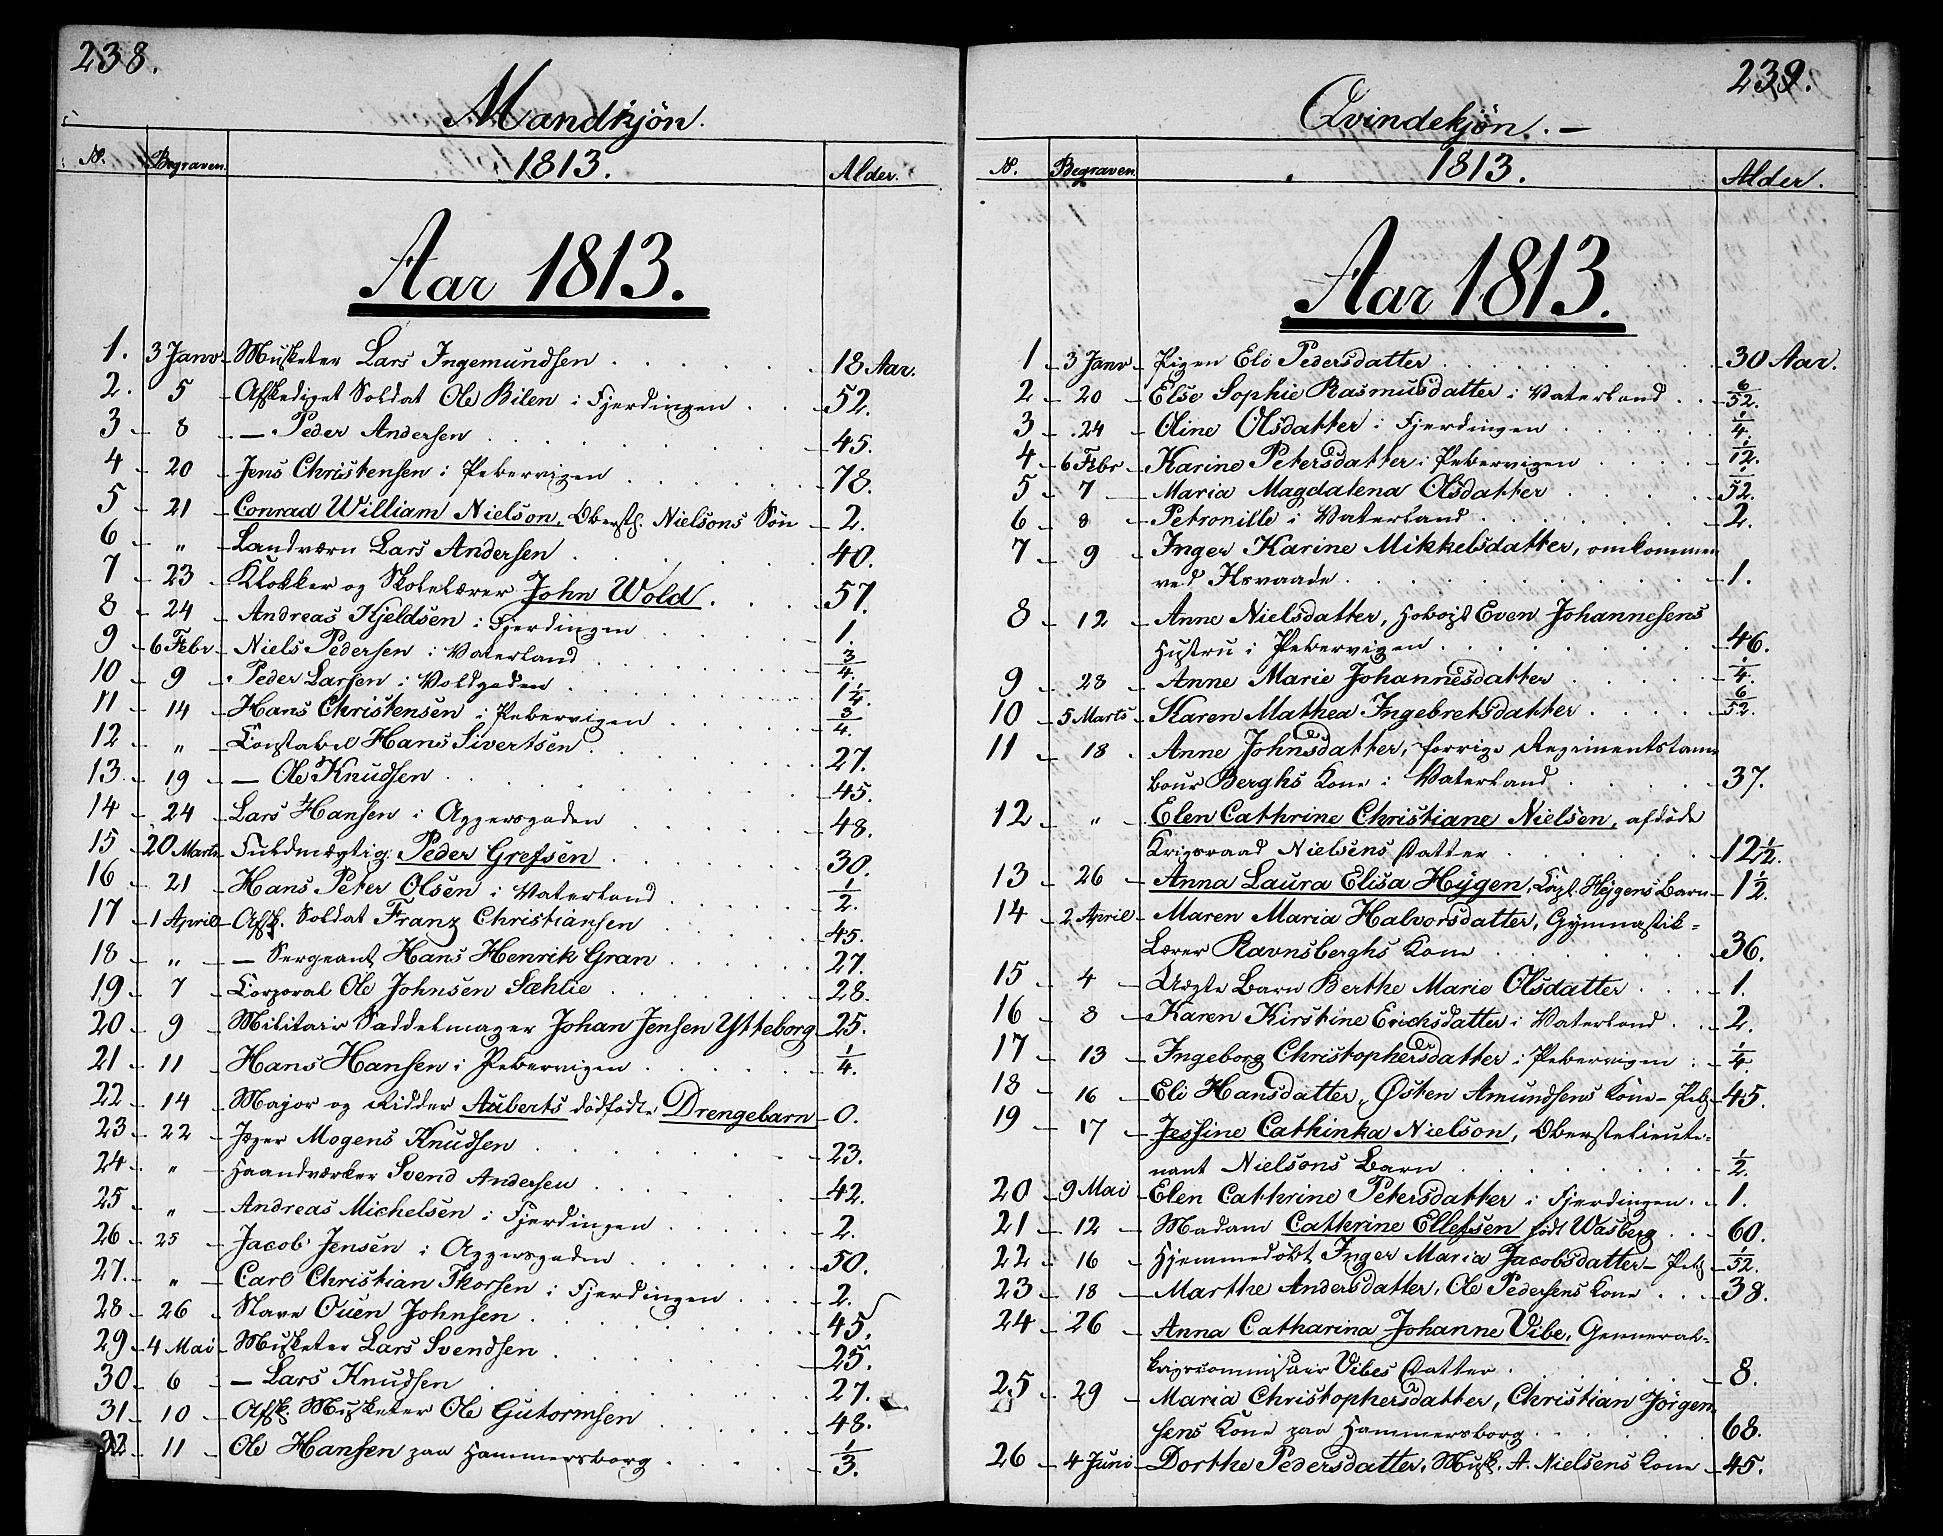 238.
Mandkjön.
N. Begraven. 1813. Alder.
Aar 1813.
1. 3 Janv Musketer Lars Ingemundsen 18 Aar.
2. 5 Afskediget Soldat Ole Bilen i Fjerdingen 52.
3 8 — Peder Andersen 45.
4 20 Jens Christensen i Pebervigen 78.
5 21 Conrad William Nielson, Oberstl. Nielsons Sön 2.
6 " Landværn Lars Andersen 40.
7 23 Klokker og Skolelærer John Wold 57.
8 24 Andreas Kjeldsen i Fjerdingen 1.
9 6 Febr Niels Pedersen i Vaterland 3/4.
10 9 Peder Larsen i Voldgaden 1 1/4.
11 14 Hans Christensen i Pebervigen 3/4.
12 " Constabel Hans Sivertsen 27.
13 19 — Ole Knudsen 45.
14 24 Lars Hansen i Aggersgaden 48.
15 20 Marts Fuldmægtig Peder Grefsen 30.
16 21 Hans Peter Olsen i Vaterland 1/2.
17 1 April Afsk. Soldat Franz Christiansen 45.
18 " — Sergeant Hans Henrik Gran 27.
19 7 Corporal Ole Johnsen Sæhlie 28.
20 9 Militair Saddelmager Johan Jensen Ytteborg 25.
21 11 Hans Hansen i Pebervigen 1/4.
22 14 Major og Ridder Auberts dödfödte Drengebarn 0.
23 22 Jæger Mogens Knudsen 23.
24 " Haandværker Svend Andersen 42.
25 " Andreas Michelsen i Fjerdingen 2.
26 25 Jacob Jensen i Aggersgaden 50.
27. " Carl Christian Thorsen i Fjerdingen 2.
28 26 Slave Ouen Johnsen 45.
29 4 Mai Musketer Lars Svendsen 25.
30 6 — Lars Knudsen 27.
31 10 Afsk. Musketer Ole Gutormsen 48.
32 11 Ole Hansen paa Hammersborg 1/3.
239.
Qvindekjön.
N. Begraven 1813. Alder.
Aar 1813.
1 3 Janv Pigen Eli Pedersdatter 30 Aar.
2 20 Else Sophie Rasmusdatter i Vaterland 6/52.
3 24 Oline Olsdatter i Fjerdingen 1/4.
4 6 Febr Karine Petersdatter i Pebervigen 1/12.
5 7 Maria Magdalena Olsdatter 1/52.
6 8 Petronille i Vaterland 2.
7 9 Inger Karine Mikkelsdatter, omkommen
ved Ilsvaade 1.
8 12 Anne Nielsdatter, Hoboist Even Johannesens
Hustru i Pebervigen 46.
9 28 Anne Marie Johannesdatter 1/4.
10 5 Marts Karen Mathea Ingebretsdatter 6/52.
11 18 Anne Johnsdatter, forrige Regimentstam-
bour Berghs Kone i Vaterland 37.
12 " Elen Cathrine Christiane Nielsen, afdöde
Krigsraad Nielsens Datter 12 1/2.
13 26 Anna Laura Elisa Heÿgen, Capt. Heÿgens Barn 1 1/2.
14 2 April Maren Maria Halvorsdatter, Gymnastik-
Lærer Ravnsberghs Kone 36.
15 4 Uægte Barn Berthe Marie Olsdatter 1.
16 8 Karen Kirstine Ericksdatter i Vaterland 2.
17 13 Ingeborg Christophersdatter i Pebervigen 1/4.
18 16 Eli Hansdatter, Østen Amundsens Kone – Peb. 45.
19 17 Jessine Cathinka Nielson, Oberstelieute-
nant Nielsons Barn 1/2.
20 9 Mai Elen Cathrine Petersdatter i Fjerdingen 1.
21 12 Madam Cathrine Ellefsen födt Wasberg 60.
22 16 Hjemmedöbt Inger Maria Jacobsdatter – Peb. 1/52.
23 18 Marthe Andersdatter, Ole Pedersens Kone 38.
24 26 Anna Catharina Johanne Vibe, General-
krigscommissair Vibes Datter 8.
25 29 Maria Christophersdatter, Christian Jörgen-
sens Kone paa Hammersborg 68.
26 4 Juni Dorthe Pedersdatter, Musk. A. Nielsens Kone 45.